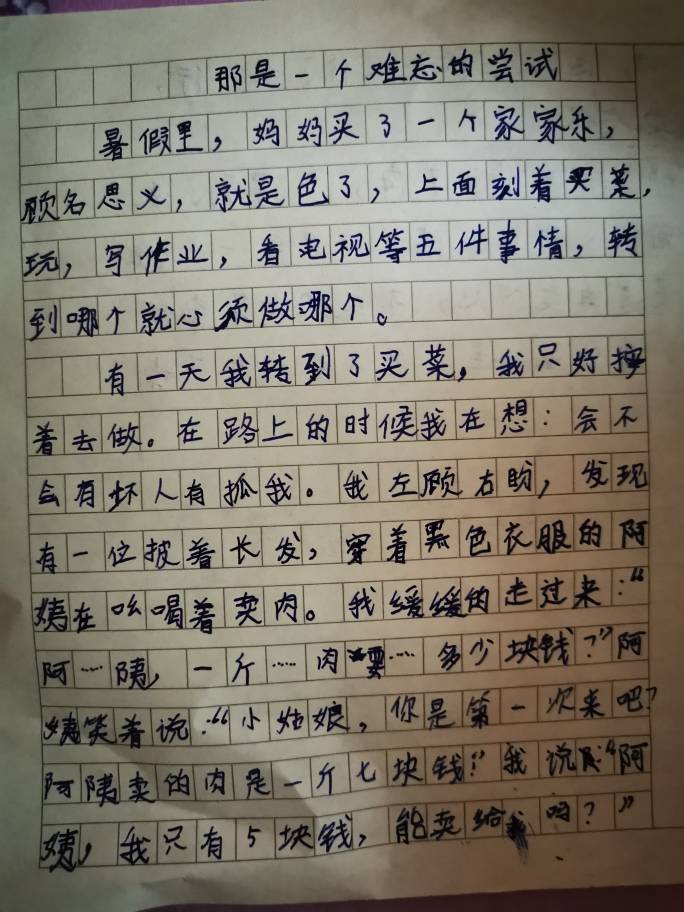 那是一个难忘的尝试
暑假里，妈妈买了一个家家乐，
顾名思义，就是色了，上面刻着买菜，
玩，写作业，看电视等五件事情，转
到哪个就心须做那个。
有一天我转到了买菜，我只好
着去做。在路上的时候我在想：会不
会有坏人有抓我。我左顾右盼，发现
有一位披着长发，穿着黑色衣服的阿
姨在吆喝着卖肉。我缓缓的走过来：“
阿……姨，一斤……肉要……多少块钱？”阿
姨笑着说：“小姑娘，你是第一次来吧？
阿姨卖的肉是一斤七块钱！”我说：“阿
姨，我只有5块钱，能卖给我吗？”